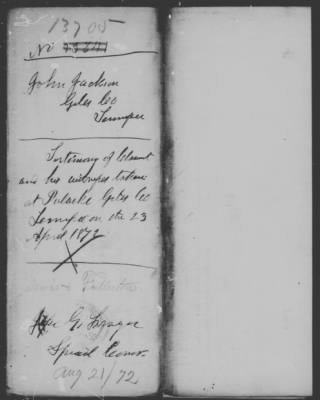 13705
No
John Jackson
Giles Co
Tennessee
Testimony of Claimant
and his witnesses taken
at Pulaski Giles Co
Tennessee on the 23
April 1872
X
G.
Special Comr.
Aug 21/72